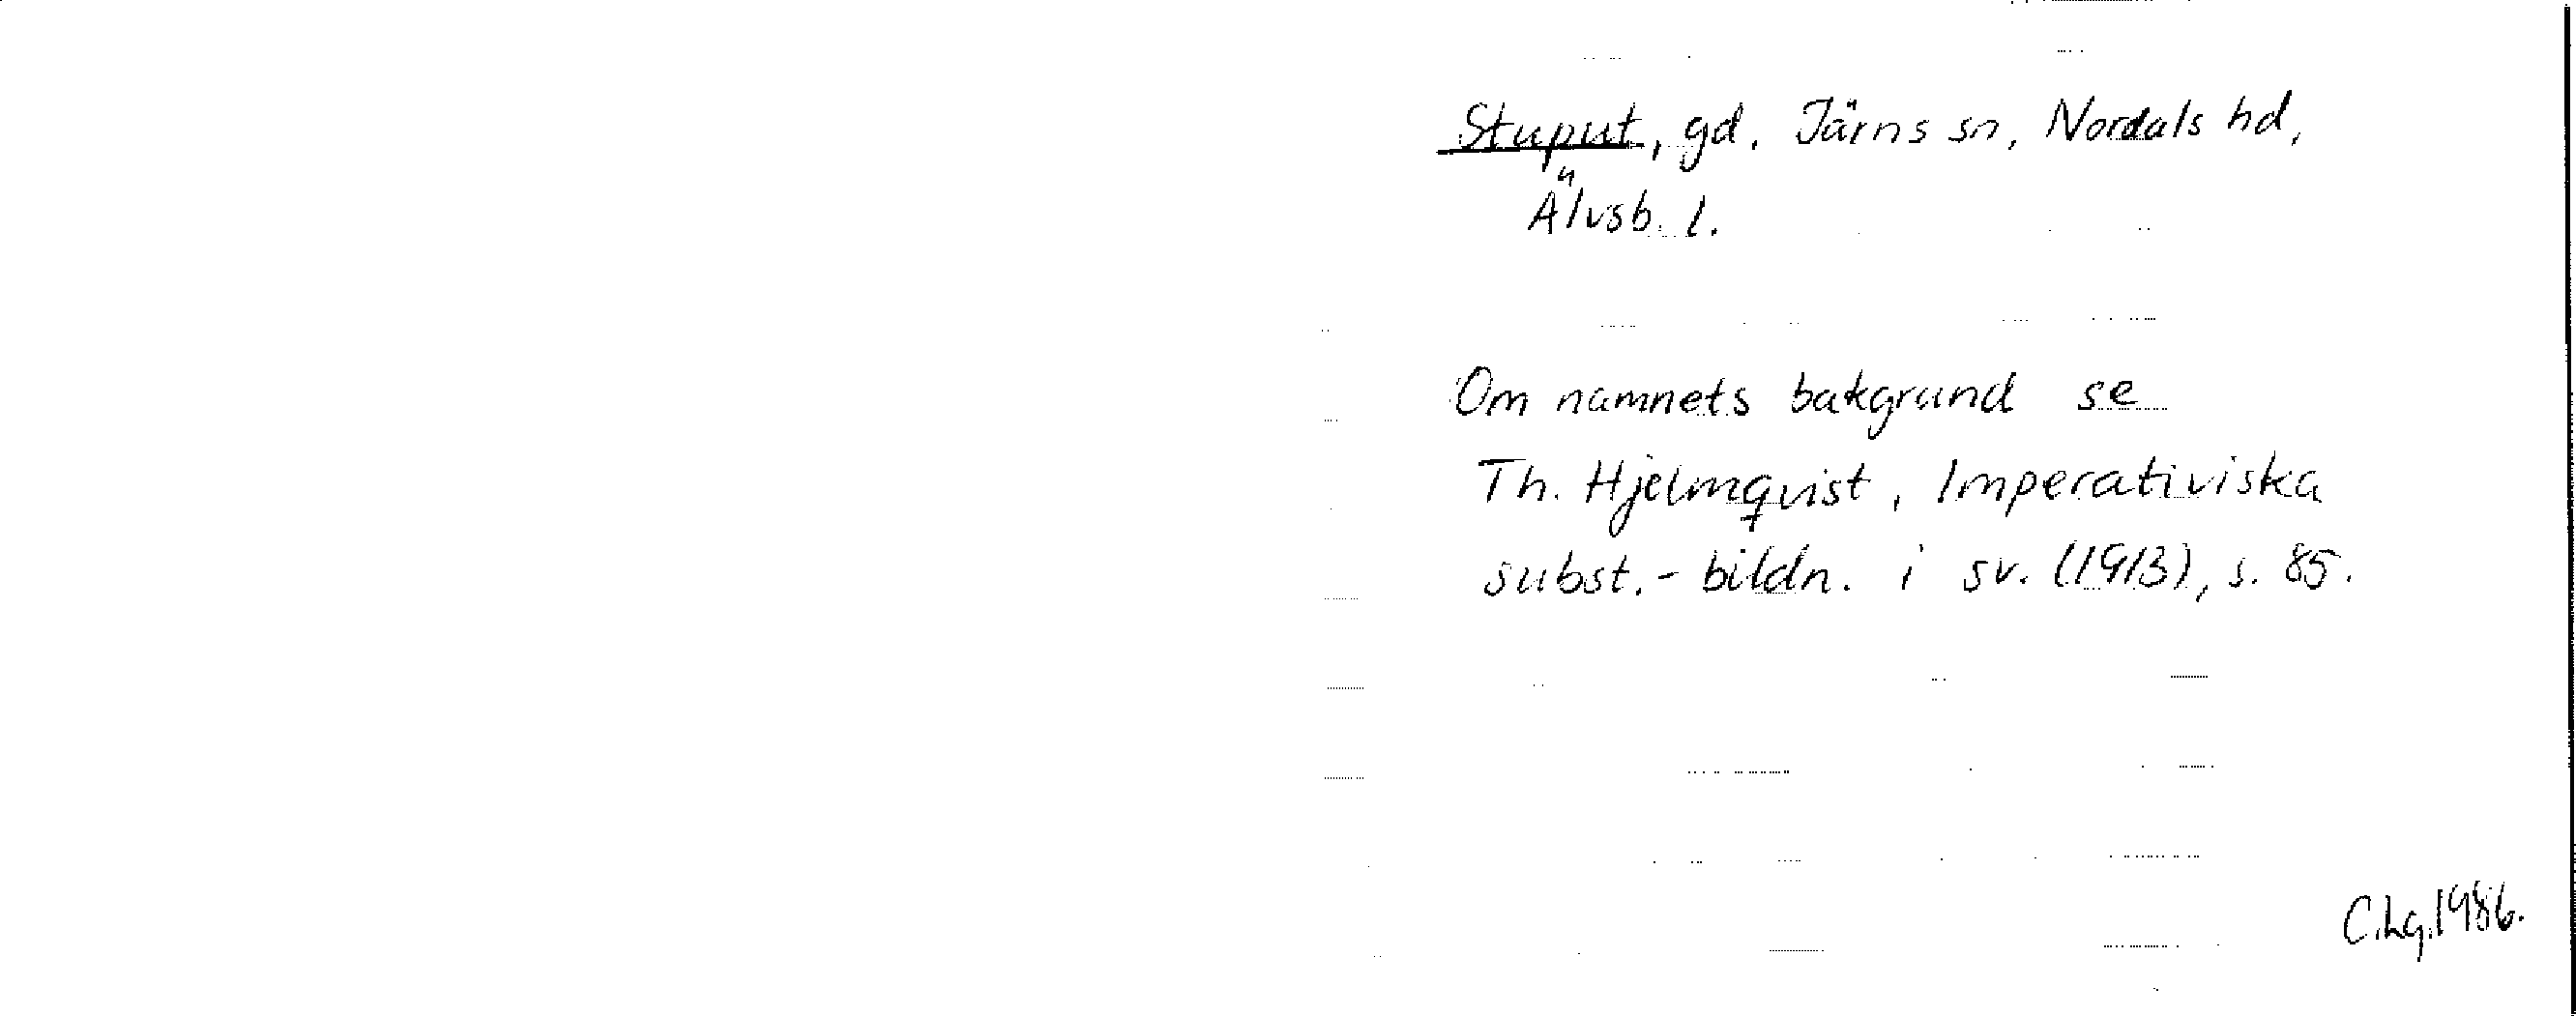 Stuput, gd, Järns sn, Nordals hd,
Älvsb. l.
Om namnets bakgrund se
Th. Hjelmqvist, Imperativiska
subst.-bildn. i sv. (1913), s. 85.
C.Lg.1986.